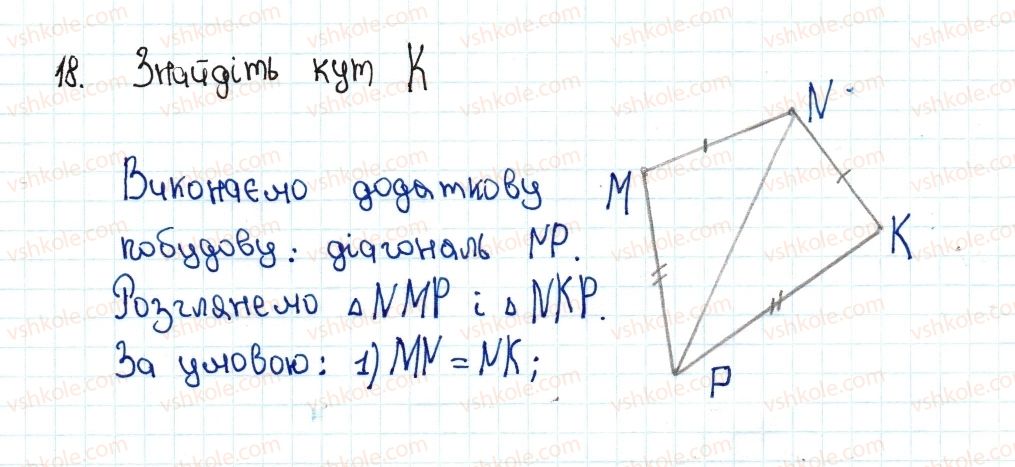 18. Знайдіть кут K
Виконаємо додаткову
побудову: діагональ NP.
Розглянемо △NMP і △NKP.
За умовою: 1) MN = NK;
N
M
K
P
vshkole.com